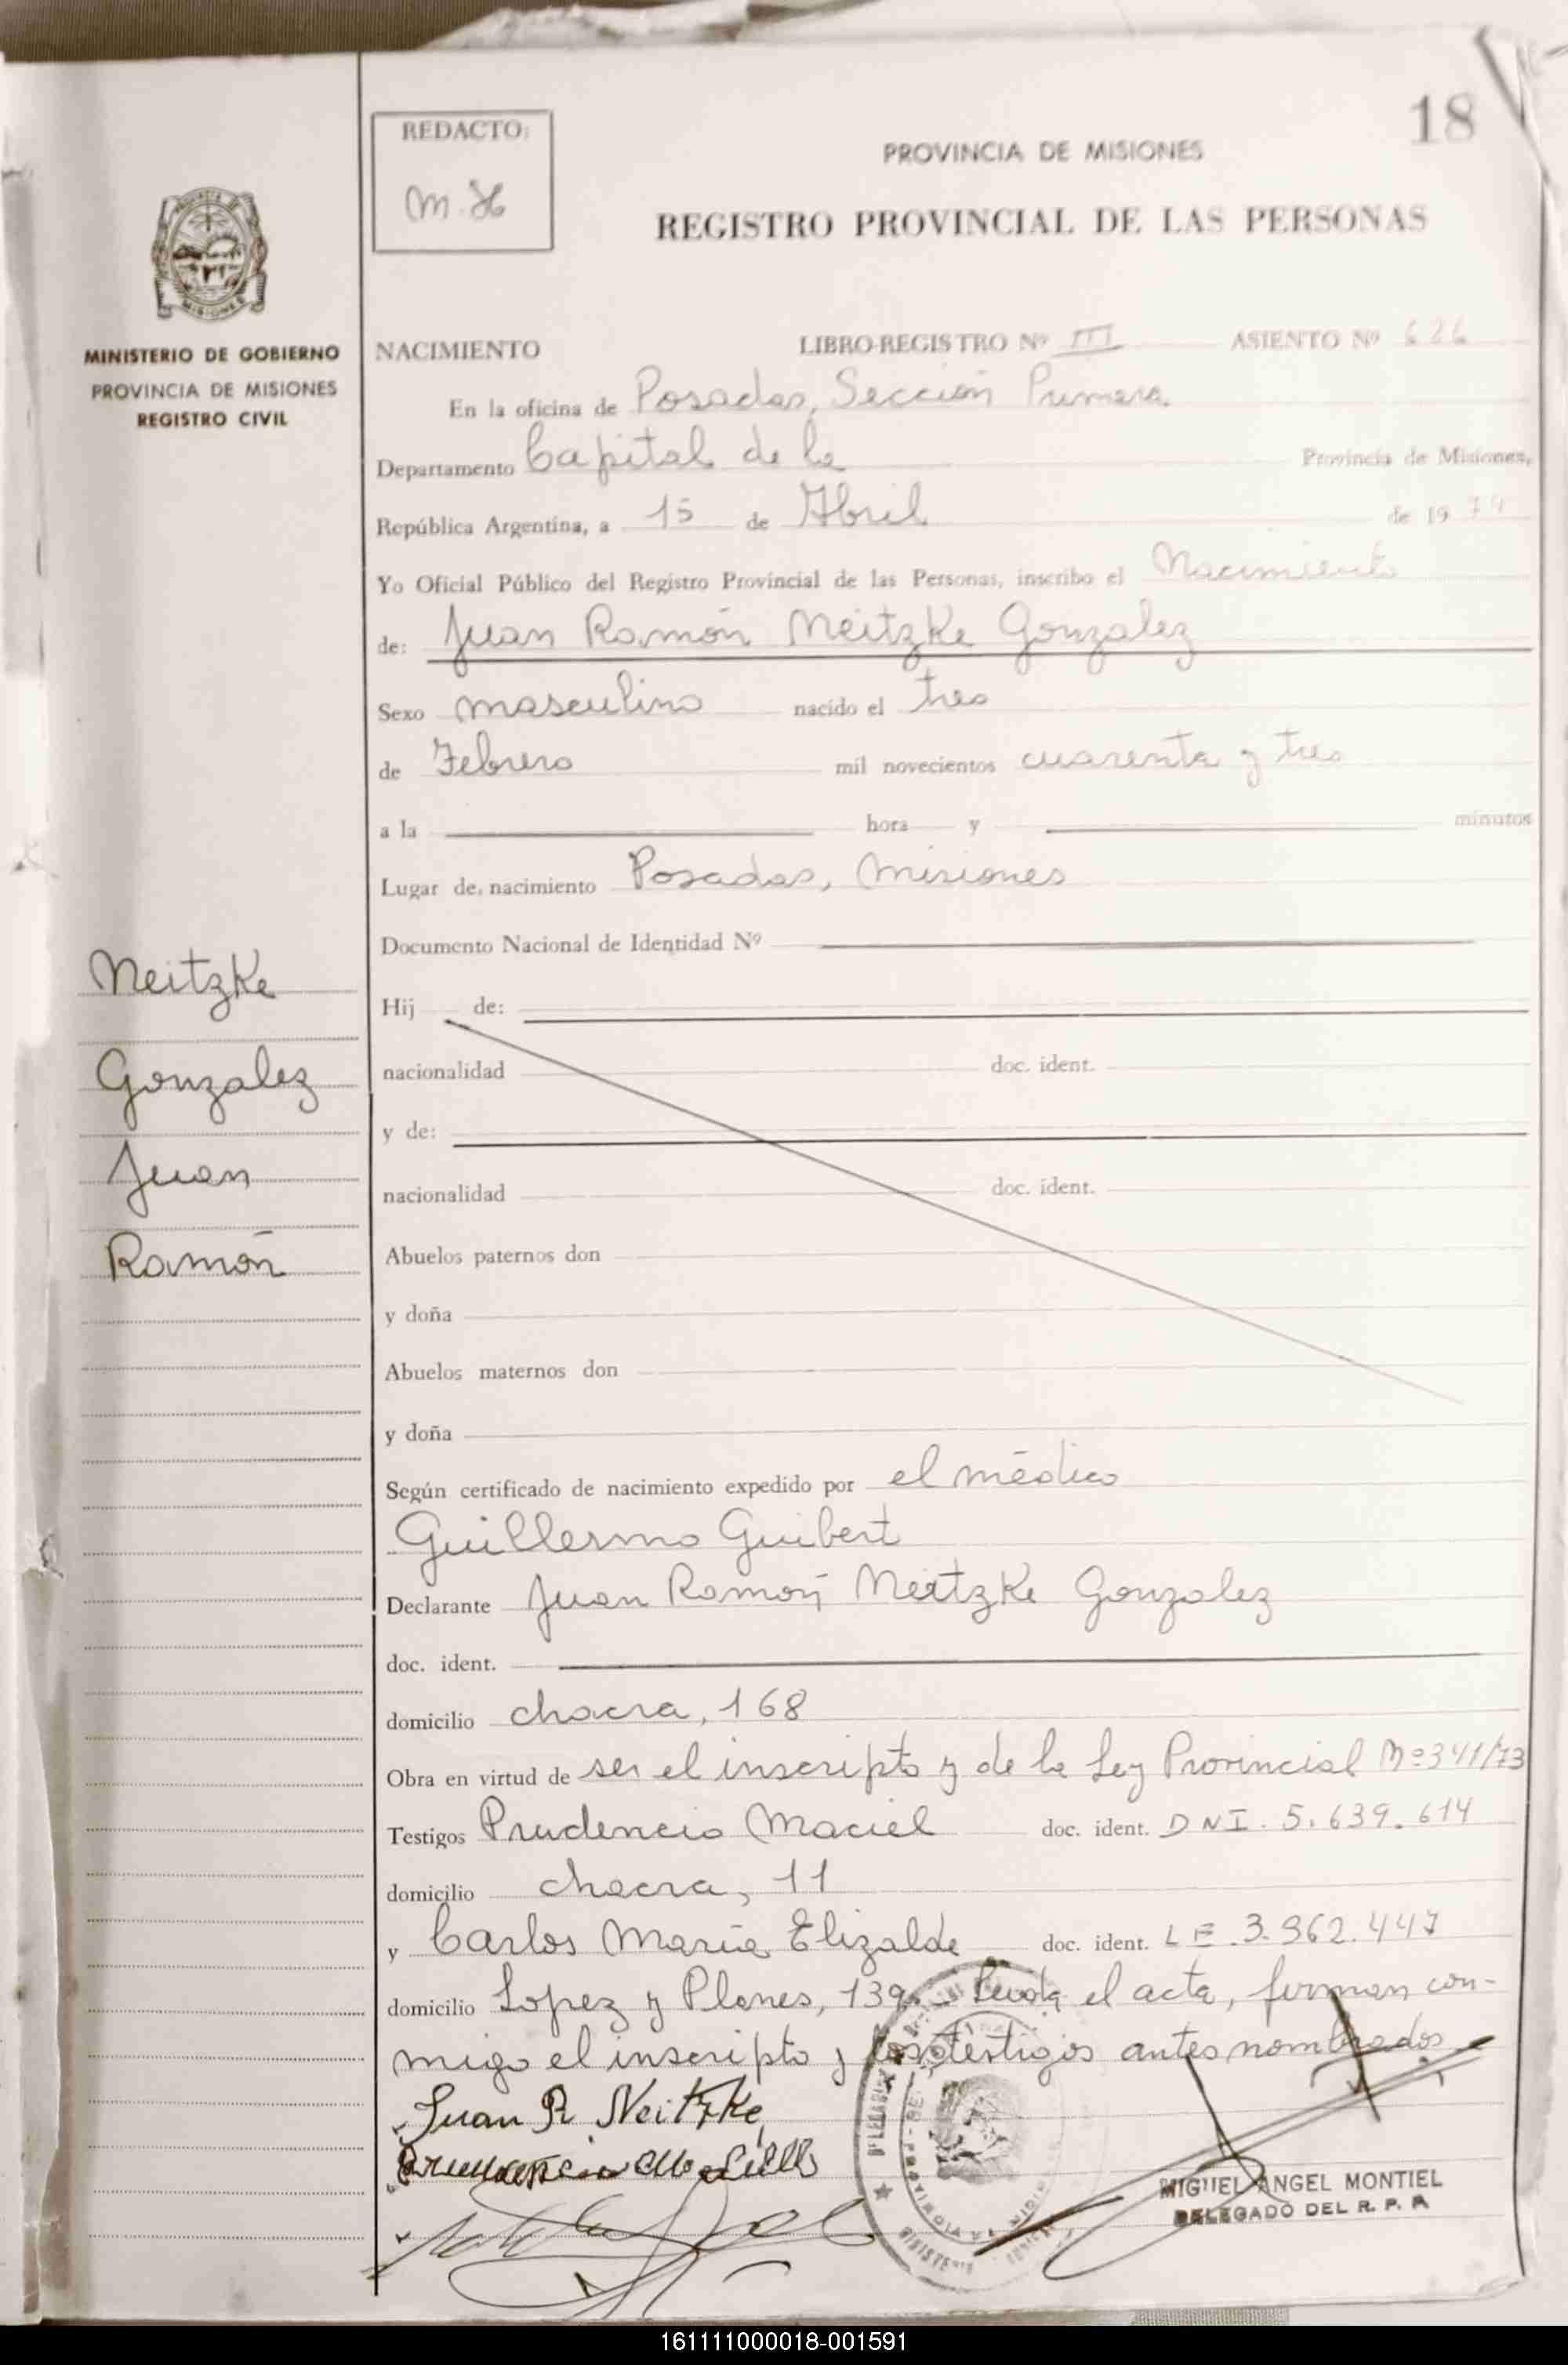 18
REDACTO:
M.H
PROVINCIA DE MISIONES
REGISTRO PROVINCIAL DE LAS PERSONAS
MINISTERIO DE GOBIERNO
PROVINCIA DE MISIONES
REGISTRO CIVIL
NACIMIENTO LIBRO-REGISTRO Nº III ASIENTO Nº 626
En la oficina de Posadas, Sección Primera
Departamento Capital de la Provincia de Misiones,
República Argentina, a 15 de Abril de 1974
Yo Oficial Público del Registro Provincial de las Personas, inscribo el Nacimiento
de: Juan Ramón Neitzke Gonzalez
Sexo masculino nacido el tres
de Febrero mil novecientos cuarenta y tres
a la hora y minutos
Lugar de nacimiento Posadas, Misiones
Documento Nacional de Identidad Nº
Neitzke
Gonzalez
Juan
Ramón
Hij de:
nacionalidad doc. ident.
y de:
nacionalidad doc. ident.
Abuelos paternos don
y doña
Abuelos maternos don
y doña
Según certificado de nacimiento expedido por el médico
Guillermo Guibert
Declarante Juan Ramón Neitzke Gonzalez
doc. ident.
domicilio chacra, 168
Obra en virtud de ser el inscripto y de la Ley Provincial Nº 341/73
Testigos Prudencio Maciel doc. ident. DNI. 5.639.614
domicilio chacra, 11
y Carlos María Elizalde doc. ident. LE. 3.962.447
domicilio Lopez y Planes, 139.- Leida el acta, firman con-
migo el inscripto y los testigos antes nombrados
Juan R Neitzke
MIGUEL ANGEL MONTIEL
DELEGADO DEL R. P. P.
PROVINCIA DE MISIONES
161111000018-001591